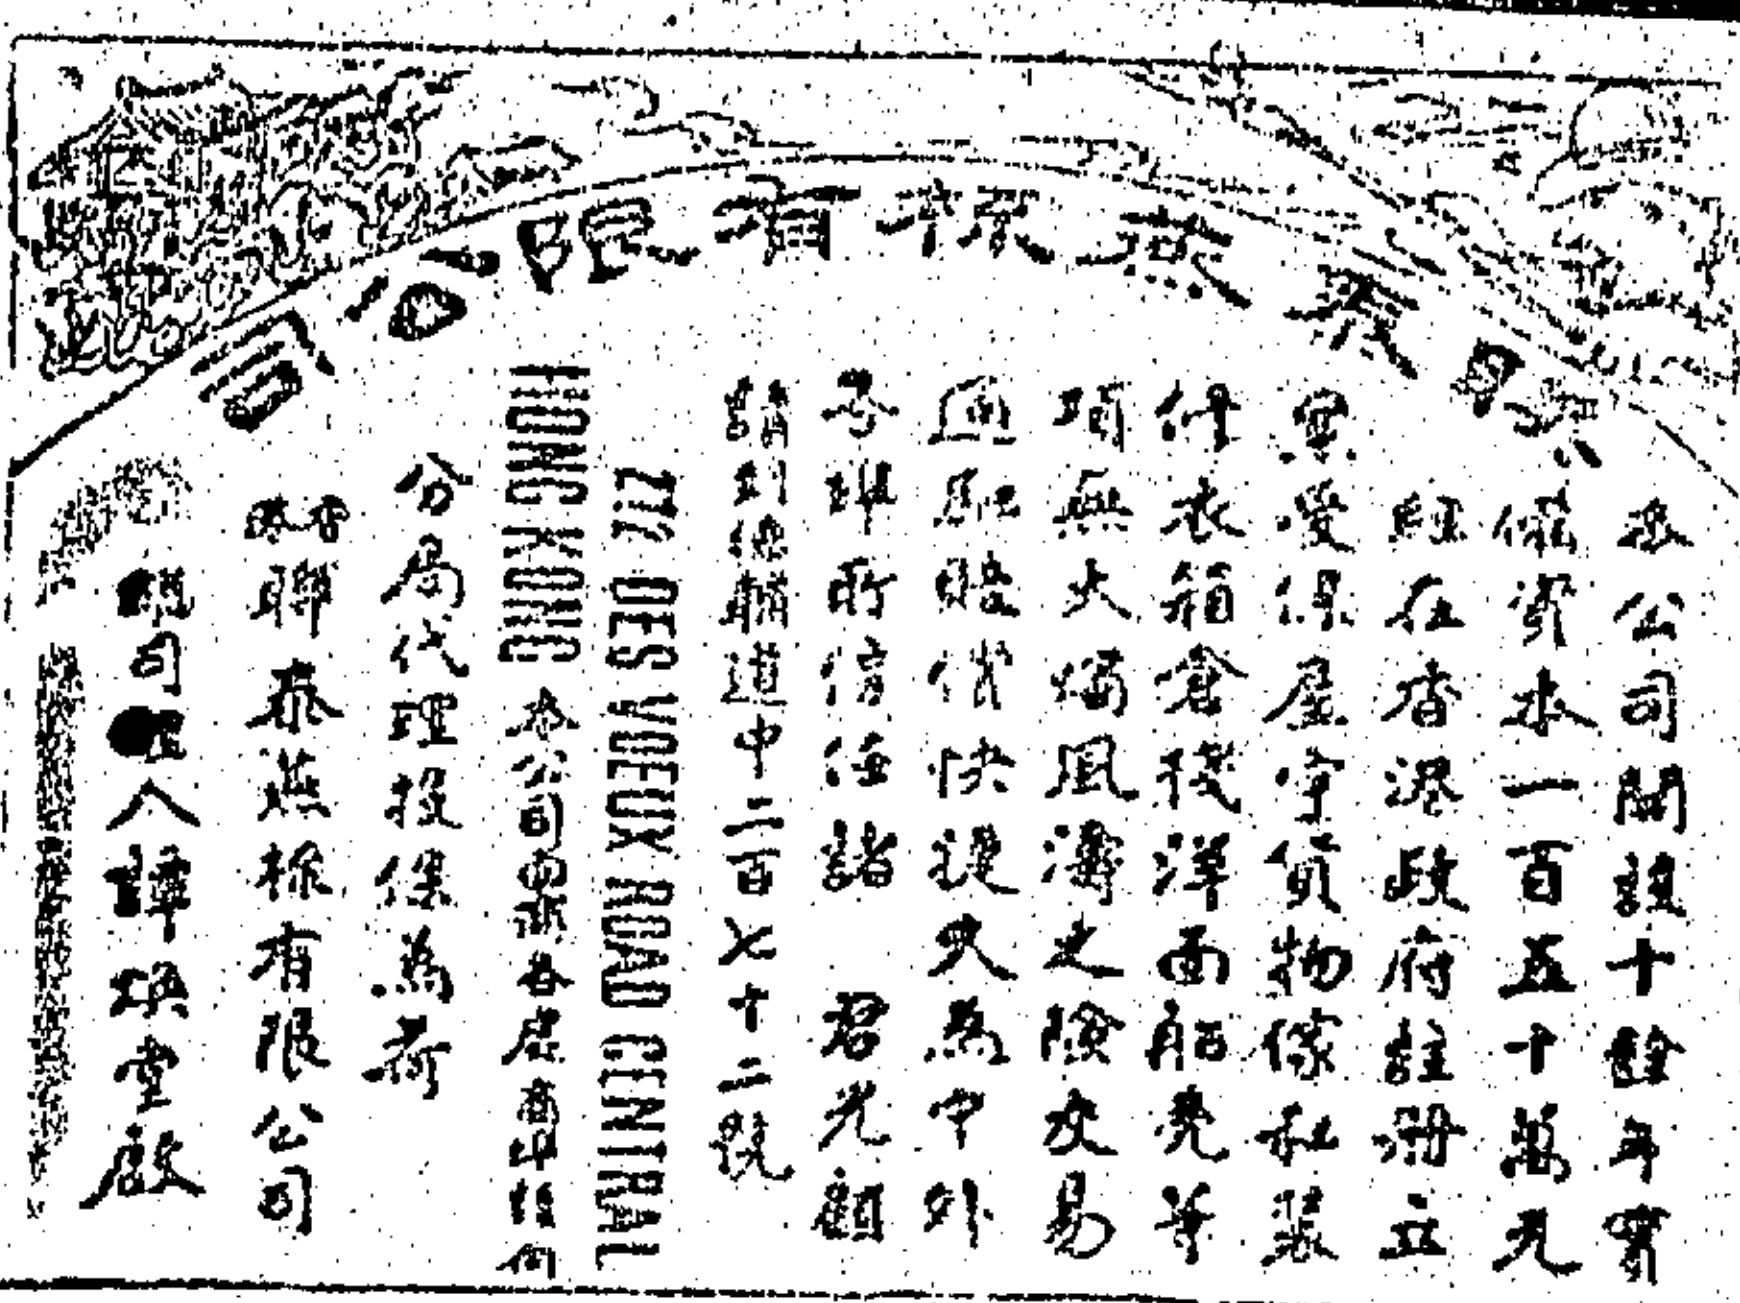 聯泰燕梳有限公司
本公司開設十餘年實
備資本一百五十萬元
經在香港政府註冊立
案受保屋宇貨物傢私裝
修衣箱倉棧洋面船壳等
項無火燭風濤之險交易
賠償快捷久為中外
所信任諸 君光顧
請到德輔道中二百七十二號
272 DES VOEUX ROAD CENTRAL
HONG KONG
本公司各處商埠
分局代理投保為荷
香港聯泰燕梳有限公司
司理人譚煥堂啟